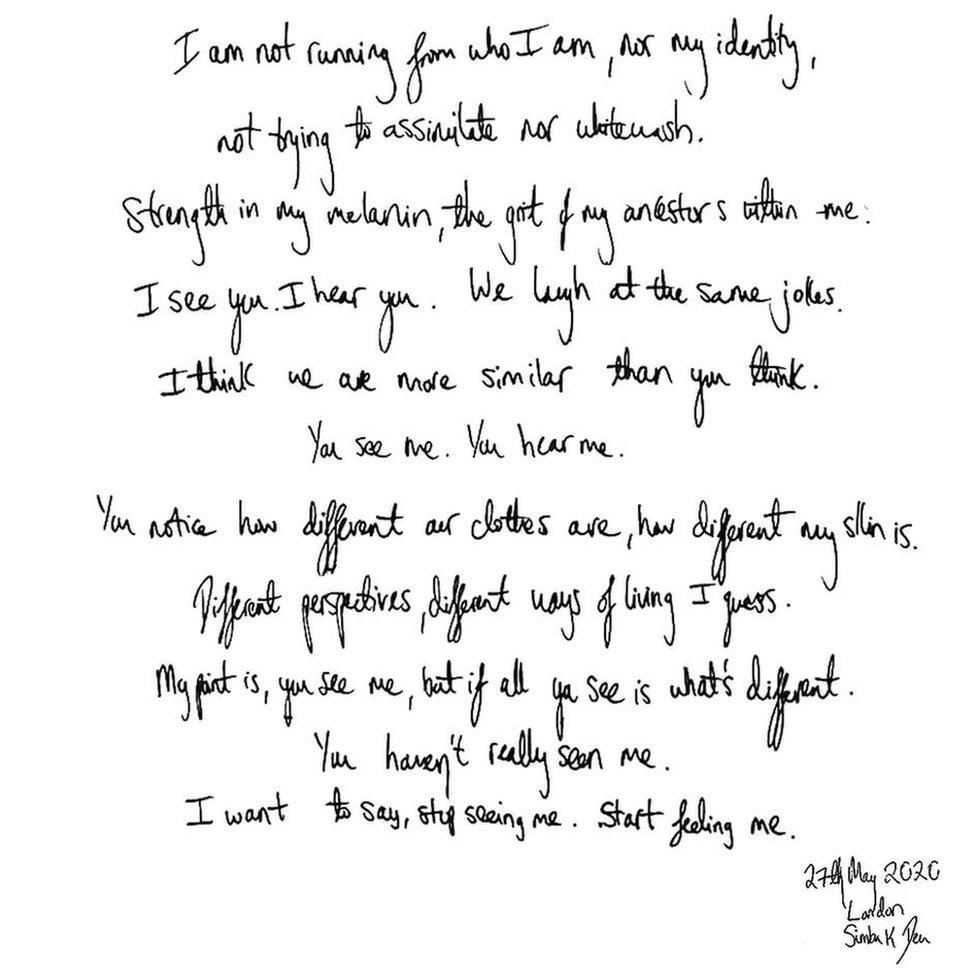 I am not running from who I am, nor my identity,
not trying to assimilate nor whitewash.
Strength in my melanin, the grit of my ancestors within me.
I see you. I hear you. We laugh at the same jokes.
I think we are more similar than you think.
You see me. You hear me.
You notice how different our clothes are, how different my skin is.
Different perspectives, different ways of living I guess.
My point is, you see me, but if all ya see is what's different.
You haven't really seen me.
I want to say, stop seeing me. Start feeling me.
27th May 2020
London
Simba K